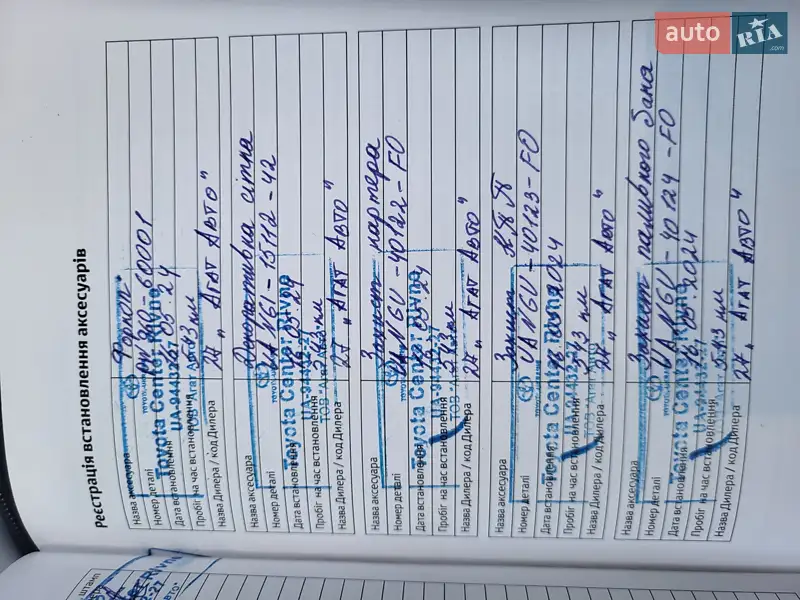 auto RIA.com
Реєстрація встановлення аксесуарів
Назва аксесуара
Номер деталі 60001
Дата встановлення 05.24
Пробіг на час встановлення км
Назва Дилера / код Дилера 27 „Агат Авто"
Toyota Center Rivne
UA-94432-27
ТОВ "Агат Авто"
Назва аксесуара Декоративна сітка
Номер деталі 15112-42
Дата встановлення
Пробіг на час встановлення км
Назва Дилера / код Дилера 27 „Агат Авто"
Toyota Center Rivne
UA-94432-27
ТОВ "Агат Авто"
Назва аксесуара Захист картера
Номер деталі UANGU-40122-FO
Дата встановлення
Пробіг на час встановлення км
Назва Дилера / код Дилера 27 „Агат Авто"
Toyota Center Rivne
UA-94432-27
ТОВ "Агат Авто"
Назва аксесуара Захист КПП
Номер деталі UANGU-40123-FO
Дата встановлення 2024
Пробіг на час встановлення км
Назва Дилера / код Дилера 27 „Агат Авто"
Toyota Center Rivne
UA-94432-27
ТОВ "Агат Авто"
Назва аксесуара Захист паливного бака
Номер деталі UANGU-40124-FO
Дата встановлення 05.2024
Пробіг на час встановлення км
Назва Дилера / код Дилера 27 „Агат Авто"
Toyota Center Rivne
UA-94432-27